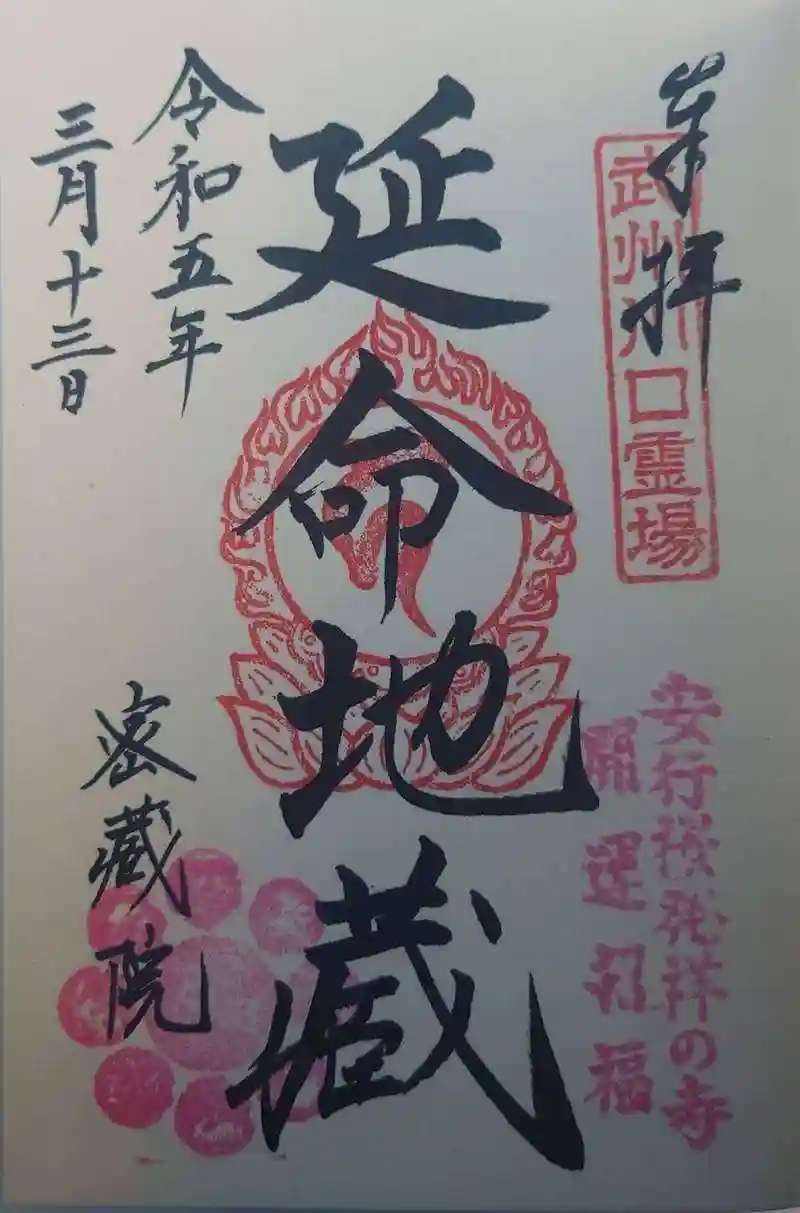 奉拝
武州川口霊場
安行桜発祥の寺
開運招福
延命地蔵
令和五年
三月十三日
密蔵院